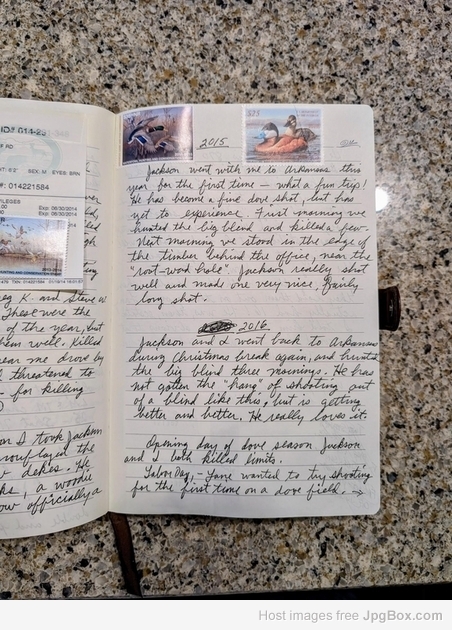 ID# 014-25
RD
SEX: M EYES BRN
#: 014221584
Exp: 06/30/2014
Exp: 06/30/2014
eg K. and Steve W
These were the
of the year, but
them well. Killed
near me drove by
I threatened to
- for killing
on I took Jackson
the
dekes. He
a woodie
now officially a
2015
$25
Jackson went with me to Arkansas this
year for the first time — what a fun trip!
He has become a fine dove shot, but has
yet to experience. First morning we
hunted the big blend and killed a few.
Next morning we stood in the edge of
the timber behind the office, near the
"root-wad hole". Jackson really shot
well and made one very nice, fairly
long shot.
2016
Jackson and I went back to Arkansas
during Christmas break again, and hunted
the big blind three mornings. He has
not gotten the "hang" of shooting out
of a blind like this, but is getting
better and better. He really loves it.
Opening day of dove season Jackson
and I both killed limits.
Labor Day, - Jane wanted to try shooting
for the first time on a dove field. →
Host images free JpgBox.com